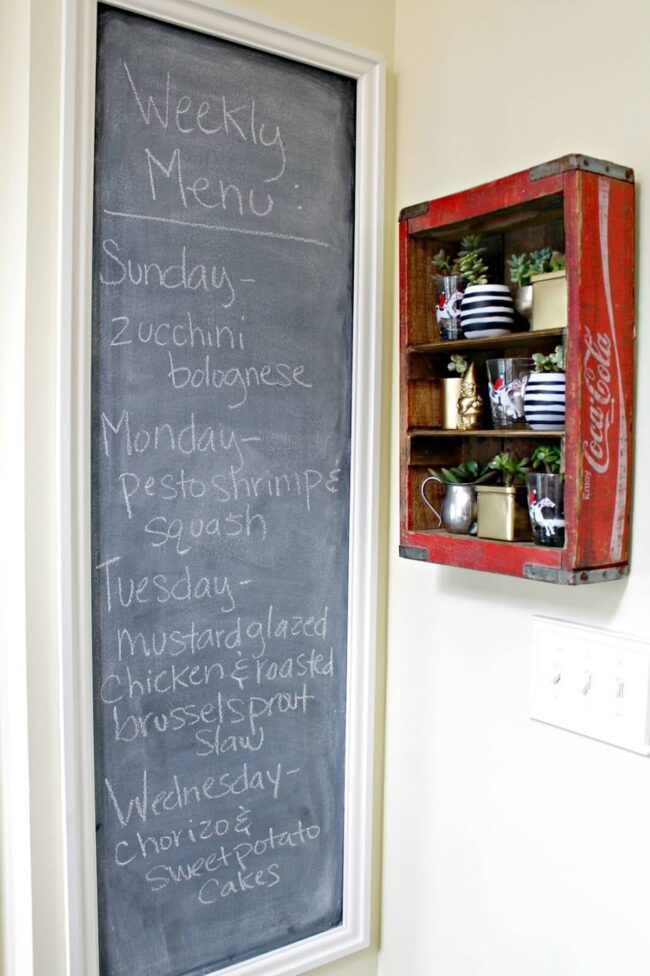 Weekly
Menu:
Sunday-
zucchini
bolognese
Monday-
pesto shrimp &
squash
Tuesday-
mustard glazed
chicken & roasted
brussel sprout
slaw
Wednesday-
chorizo &
sweet potato
cakes
Enjoy
Coca-Cola